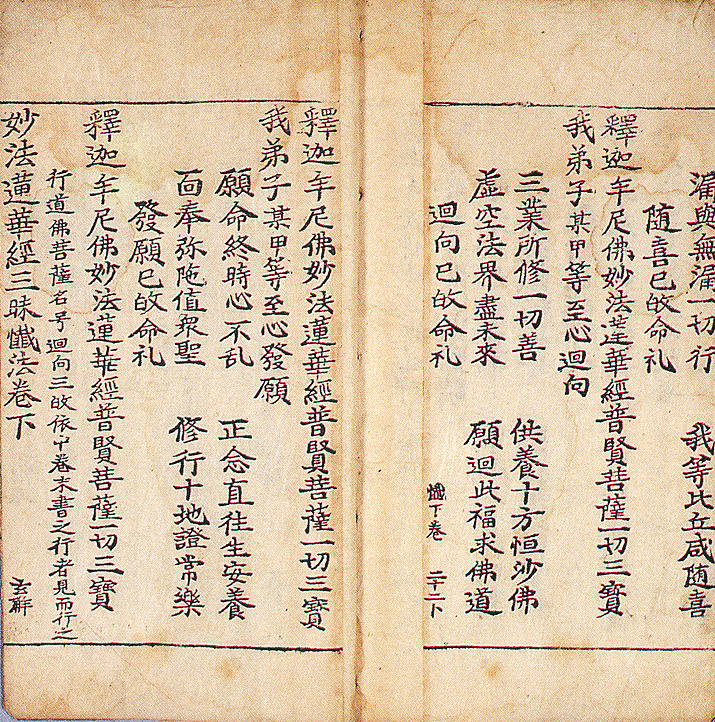 漏與無漏一切行　我等比丘咸随喜
随喜已敀命礼
釋迦牟尼佛妙法莲華經普賢菩薩一切三寶
我弟子某甲等至心迴向
三業所修一切善　供養十方恒沙佛
虛空法界盡未來　願迴此福求佛道
迴向已敀命礼
懺下卷　二十二
釋迦牟尼佛妙法蓮華經普賢菩薩一切三寶
我弟子某甲等至心發願
願命終時心不乱　正念直往生安養
面奉弥陁值衆聖　修行十地證常樂
發願已敀命礼
釋迦牟尼佛妙法蓮華經普賢菩薩一切三寶
行道佛菩薩名号迴向三敀依中卷末書之行者見而行之
妙法蓮華經三昧懺法卷下